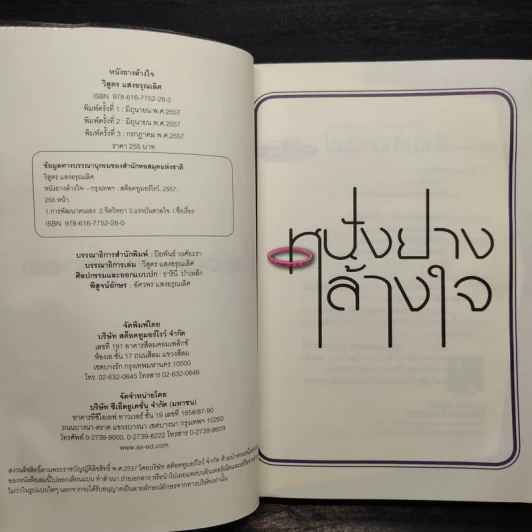 หนังยางล้างใจ
วิสูตร แสงอรุณเลิศ
ISBN 978-616-7752-28-0
พิมพ์ครั้งที่ 1 : มิถุนายน พ.ศ.2557
พิมพ์ครั้งที่ 2 : มิถุนายน พ.ศ.2557
พิมพ์ครั้งที่ 3 : กรกฎาคม พ.ศ.2557
ราคา 255 บาท
ข้อมูลทางบรรณานุกรมของสำนักหอสมุดแห่งชาติ
วิสูตร แสงอรุณเลิศ
หนังยางล้างใจ.- - กรุงเทพฯ : สต็อคทูมอร์โรว์, 2557.
256 หน้า.
1.การพัฒนาตนเอง 2.จิตวิทยา 3.แรงบันดาลใจ. I.ชื่อเรื่อง
ISBN 978-616-7752-28-0
บรรณาธิการสำนักพิมพ์ : ปิยพันธ์ วงศ์ยะรา
บรรณาธิการเล่ม : วิสูตร แสงอรุณเลิศ
ศิลปกรรมและออกแบบปก : ธารินี
พิสูจน์อักษร : อัศวพร แสงอรุณเลิศ
จัดพิมพ์โดย
บริษัท สต็อคทูมอร์โรว์ จำกัด
เลขที่ 191 อาคารสีลมคอมเพล็กซ์
ห้องเอ ชั้น 17 ถนนสีลม แขวงสีลม
เขตบางรัก กรุงเทพมหานคร 10500
โทร. 02-632-0645 โทรสาร 02-632-6500
จัดจำหน่ายโดย
บริษัท ซีเอ็ดยูเคชั่น จำกัด (มหาชน)
อาคารทีซีไอเอฟ ทาวเวอร์ ชั้น 19 เลขที่ 1858/87-90
ถนนบางนา-ตราด แขวงบางนา เขตบางนา กรุงเทพฯ 10260
โทรศัพท์ 0-2739-8000, 0-2739-8222 โทรสาร 0-2739-8609
www.se-ed.com
สงวนลิขสิทธิ์ตามพระราชบัญญัติลิขสิทธิ์ พ.ศ.2537 โดยบริษัท สต็อคทูมอร์โรว์ จำกัด ห้ามนำส่วนหนึ่งส่วนใด
ของหนังสือเล่มนี้ไปลอกเลียนแบบ ทำสำเนา ถ่ายเอกสาร หรือนำไปเผยแพร่บนอินเตอร์เน็ตและเครือข่าย
ไม่ว่าในรูปแบบใดๆ นอกจากจะได้รับอนุญาตเป็นลายลักษณ์อักษรจากทางบริษัทเท่านั้น
หนังยาง
ล้างใจ